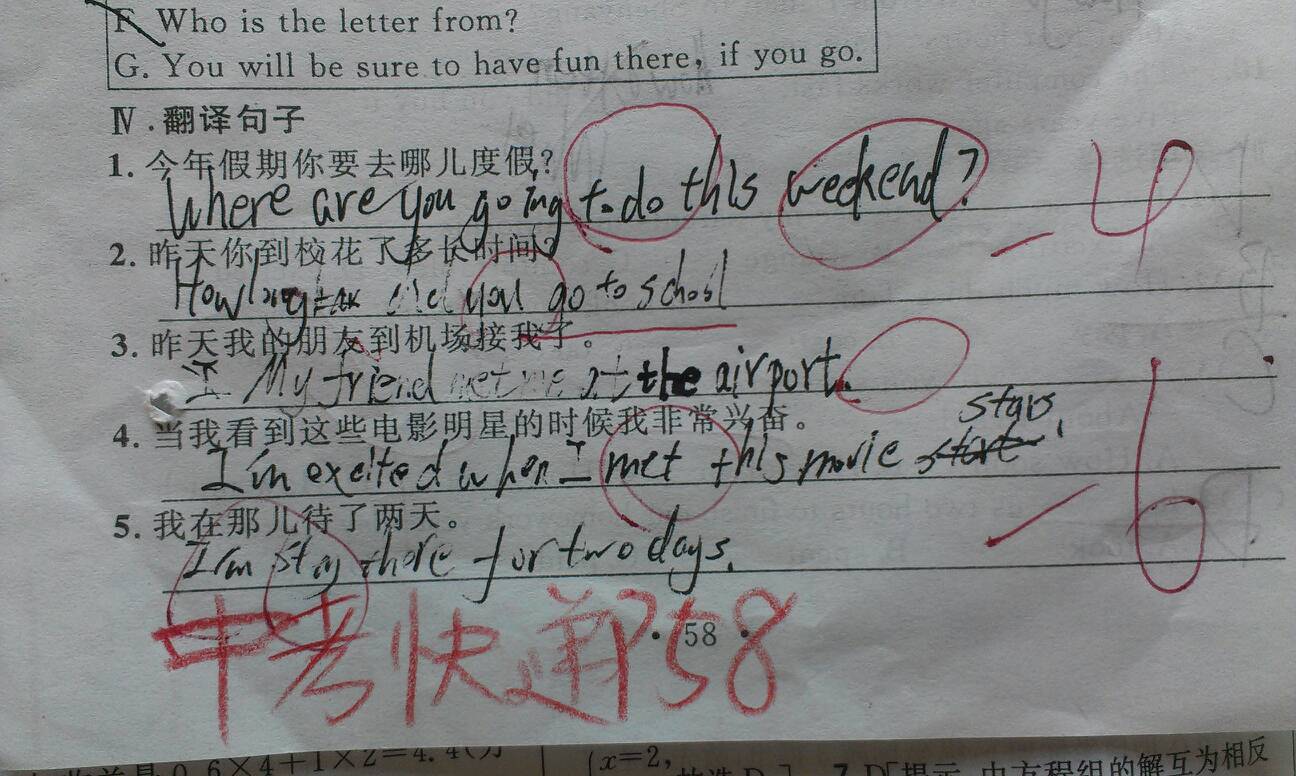 F. Who is the letter from?
G. You will be sure to have fun there, if you go.
Ⅳ.翻译句子
1. 今年假期你要去哪儿度假?
Where are you going to do this weekend?
-4
2. 昨天你到校花了多长时间?
How long did you go to school
3. 昨天我的朋友到机场接我了。
I My friend met me at the airport.
4. 当我看到这些电影明星的时候我非常兴奋。
stars.
I'm excited when I met this movie
-6
5. 我在那儿待了两天。
I'm stay there for two days.
中考快递P58
·58·
0.6×4+1×2=4.4(
x=2,
7.D[提示 由方程组的解互为相反